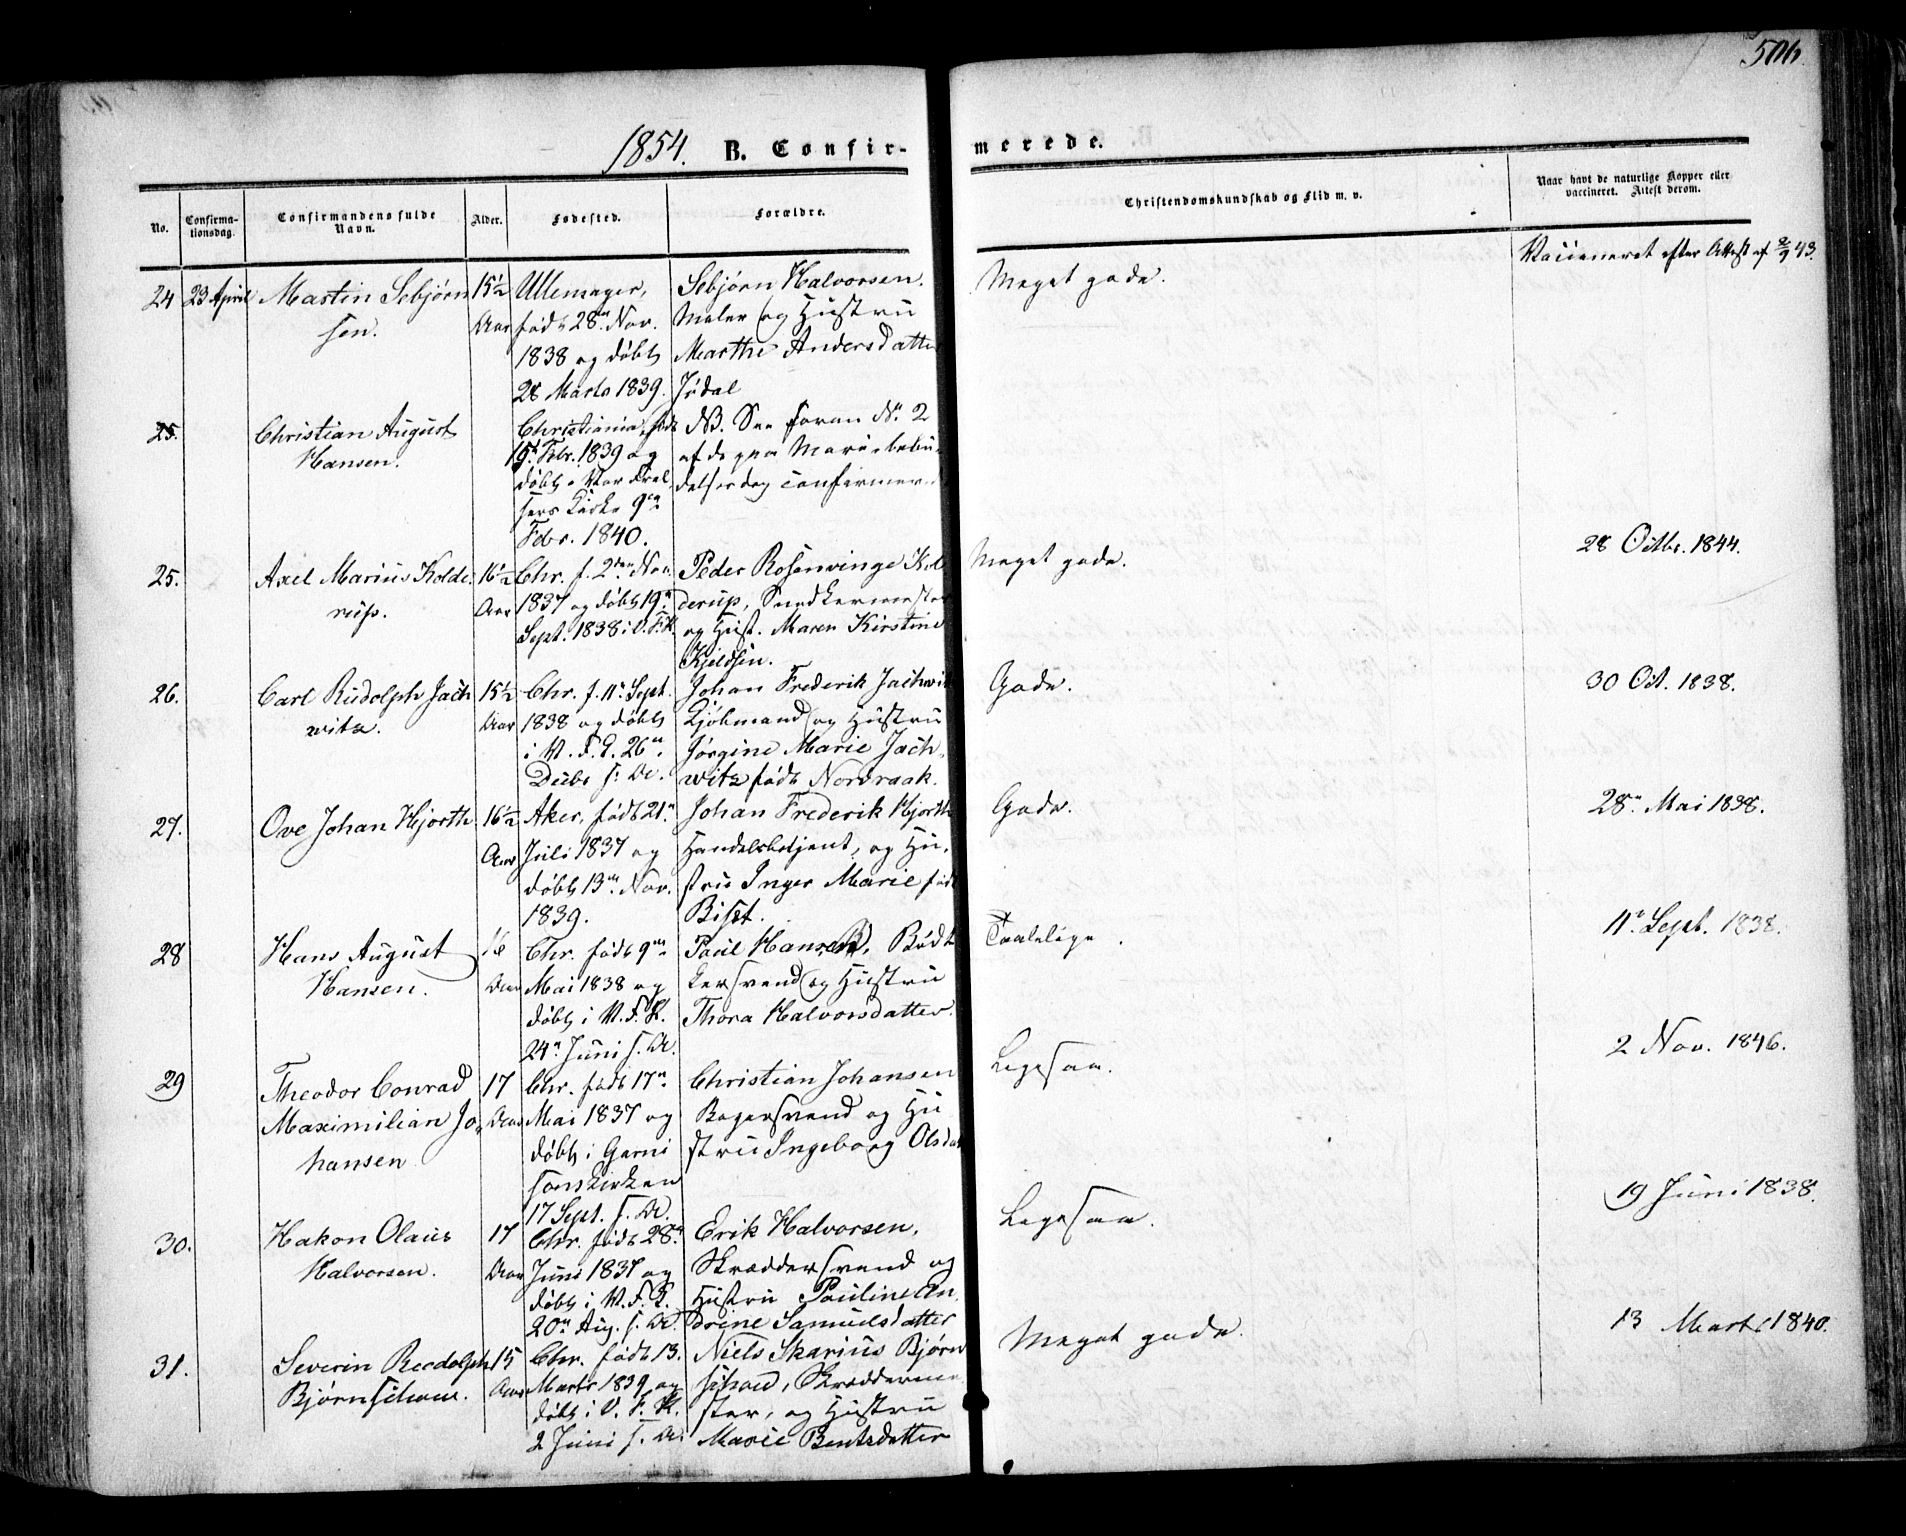 506
1854. B. Confir-
merede.
No.
Confirma-
tionsdag.
Confirmandens fulde
Navn.
Alder.
Fødested.
Forældre.
Christendomskundskab og Flid m. v.
Naar havt de naturlige Kopper eller
vaccineret. Attest derom.
24
23 April
Martin Sebjørn
sen.
15½
Aar
Ullensager,
født 28de Nov.
1838 og døbt
28 Marts 1839.
Sebjørn Halvorsen.
Maler og Hustru
Marthe Andersdatter
Jødal
Meget gode.
Vaccineret efter Attest af 2/9 43.
25.
Christian August
Hansen.
Christiania, født
15d Febr. 1839 og
døbt i Vor Frel
sers Kirke 9de
Febr. 1840.
NB. See foran No. 2
af de paa Mariæbebu-
delsesdag confirmerede
25.
Axel Marius Kolde
rup.
16½
Aar
Chr. f. 2den Nov.
1837 og døbt 19de
Sept. 1838 i V. F. K.
Peder Rosenvinge Kol
derup, Snedkermester
og Hust. Maren Kirstine
Kjeldsen.
Meget gode.
28 Octbr. 1844.
26.
Carl Rudolph Jach
witz.
15½
Aar
Chr. f. 11te Sept.
1838 og døbt
i V. F. K. 26de
Decbr s. A.
Johan Frederik Jachwitz
Kjøbmand og Hustru
Jørgine Marie Jach-
witz født Nordraak.
Gode.
30 Oct. 1838.
27.
Ove Johan Hjorth
16½
Aar
Aker, født 21de
Juli 1837 og
døbt 13de Nov.
1839.
Johan Frederik Hjorth
Handelsbetjent, og Hu-
stru Inger Marie født
Bißt.
Gode.
28de Mai 1838.
28
Hans August
Hansen.
16
Aar
Chr. født 9de
Mai 1838 og
døbt i V. F. K.
24de Juni s. A.
Poul Hansen, Bødk
kersvend og Hustru
Thora Halvorsdatter.
Taalelige.
11te Sept. 1838.
29
Theodor Conrad
Maximilian Jo-
hansen
17
Aar
Chr. født 17de
Mai 1837 og
døbt i Garni
sonskirken
17 Sept. s. A.
Christian Johansen
Bagersvend og Hu
stru Ingeborg Olsdat
Ligesaa.
2 Nov. 1846.
30.
Hakon Olaus
Halvorsen.
17
Aar
Chr. født 28de
Juni 1837 og
døbt i V. F. K.
20de Aug. s. A.
Erik Halvorsen,
Skræddersvend og
Hustru Pauline An
drine Samuelsdatter
Ligesaa.
19 Juni 1838.
31.
Severin Rudolph
Bjørnschou.
15
Aar
Chr. født 13.
Marts 1839 og
døbt i V. F. K.
2 Juni s. A.
Niels Skarius Bjørn
schou, Skrædderme
ster, og Hustru
Marie Bentsdatter
Meget gode.
13 Marts 1840.